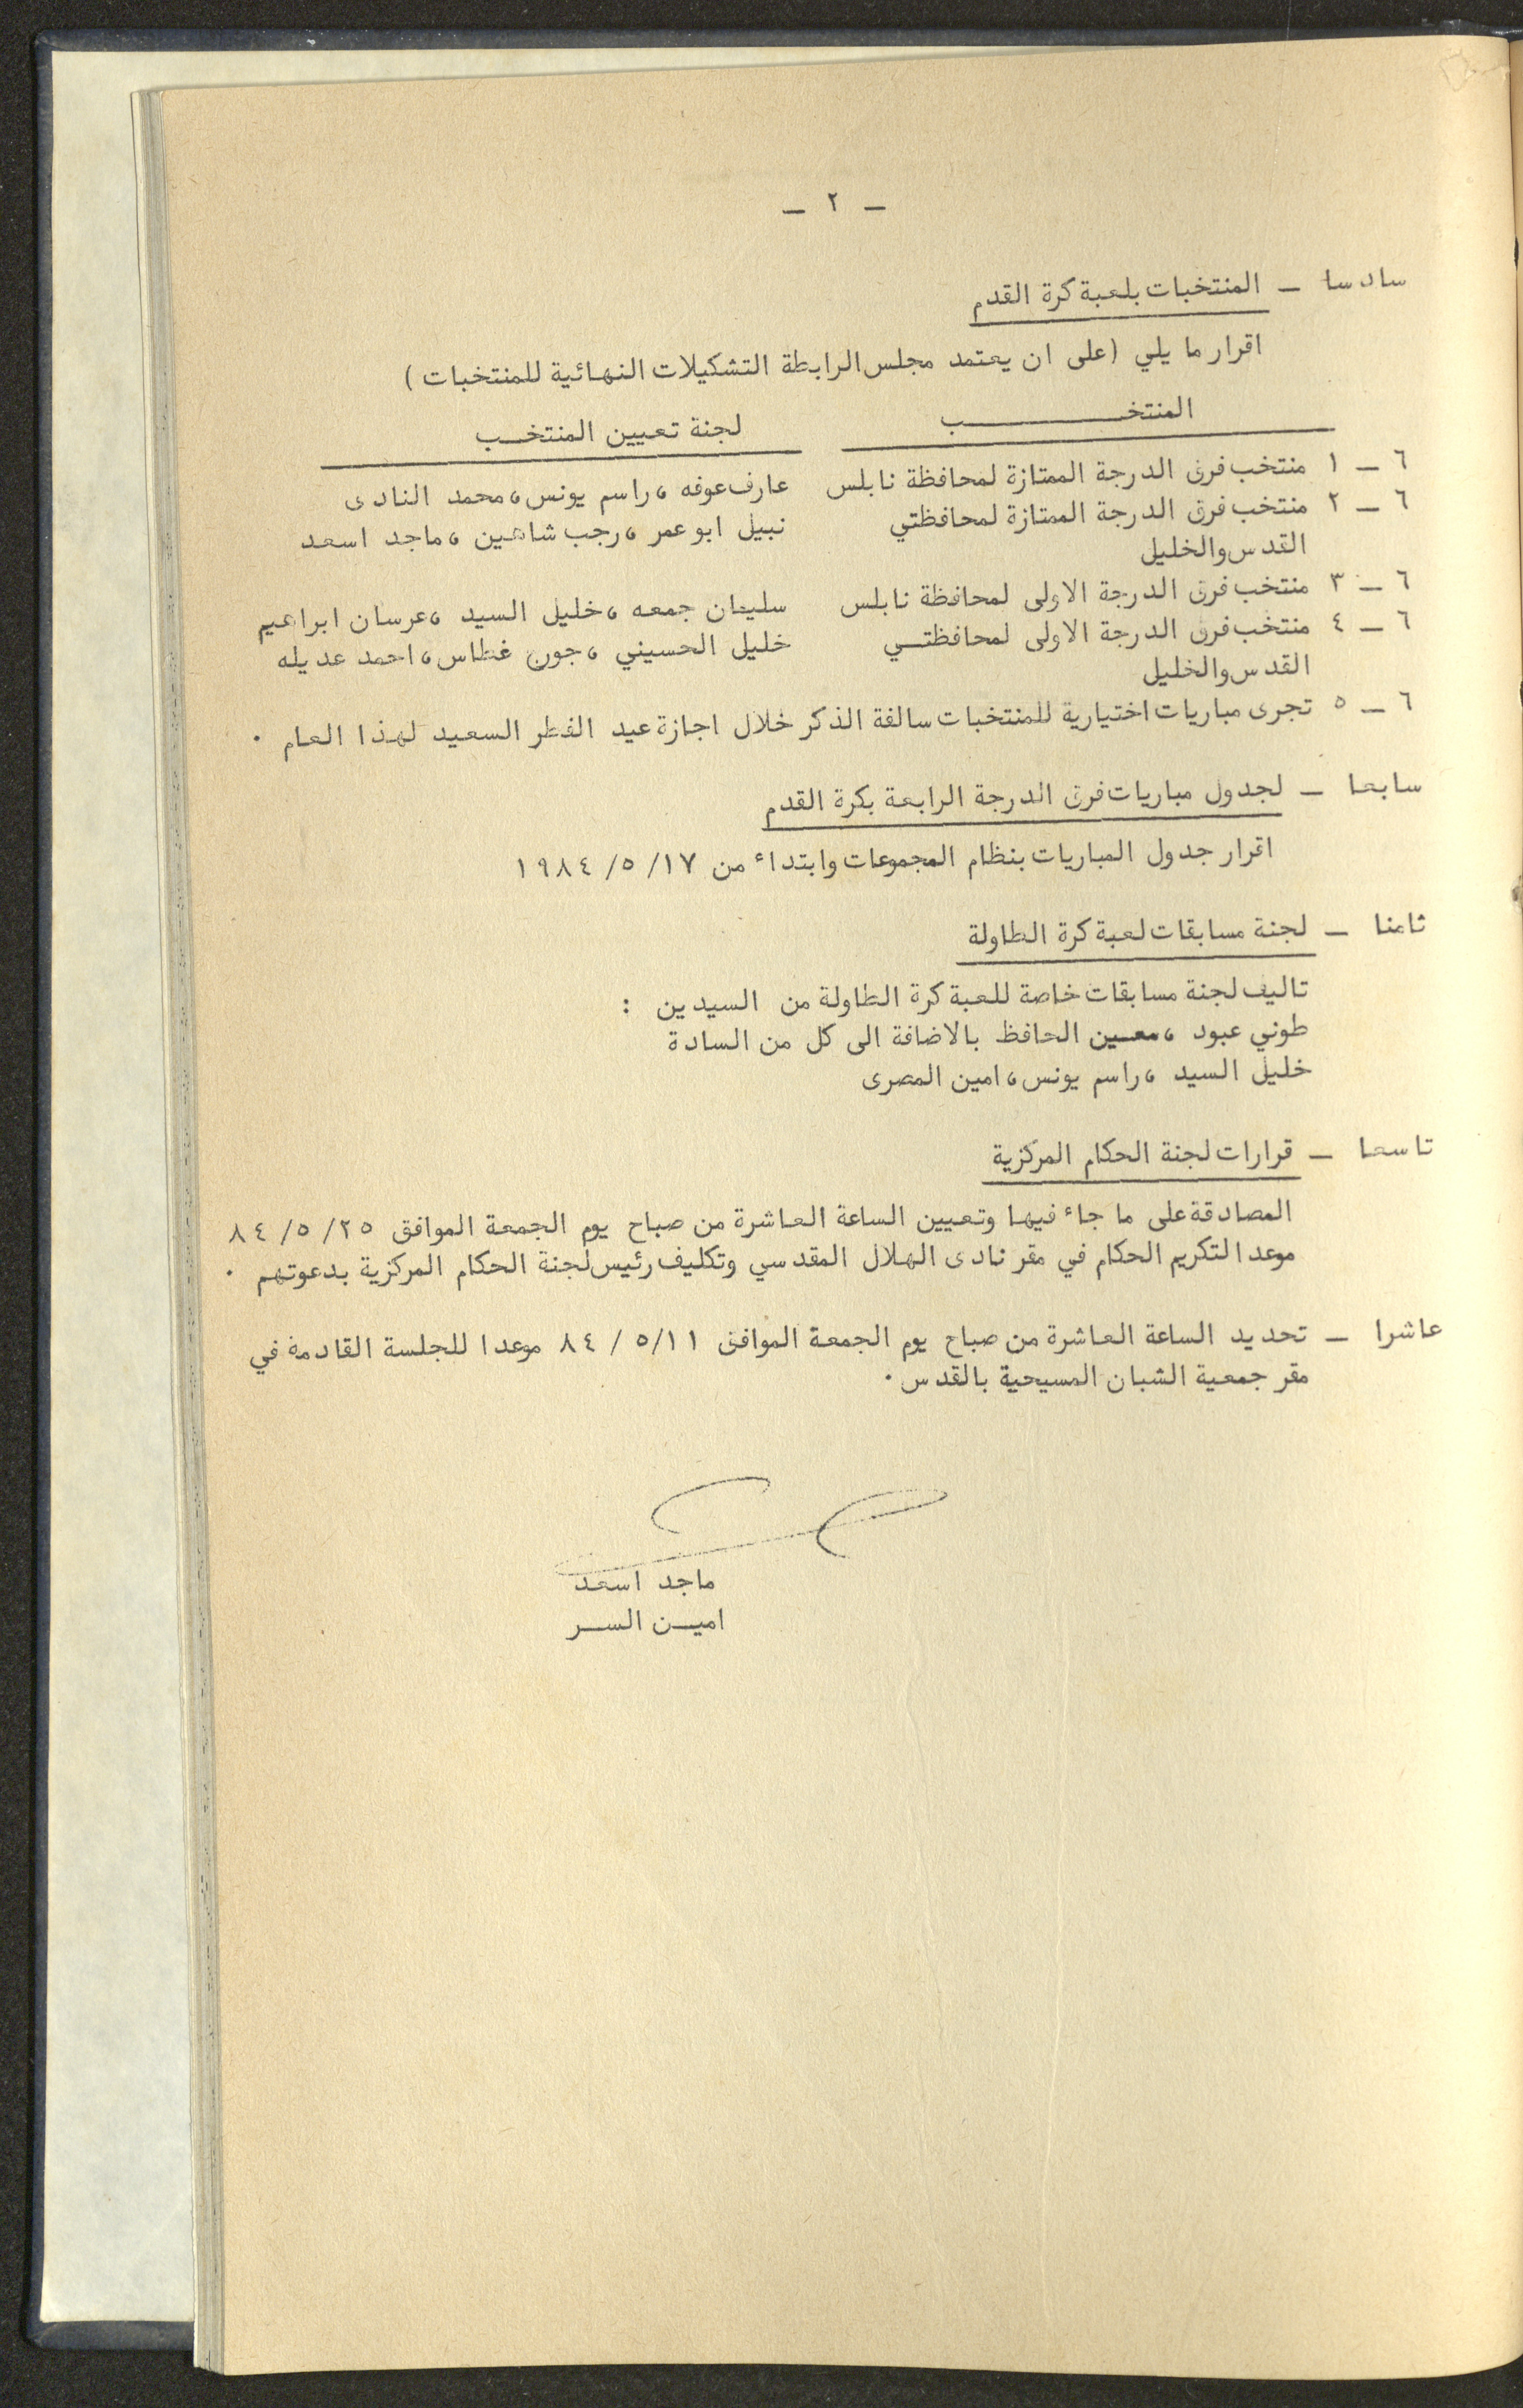 – ٢ –
سادسا – المنتخبات بلعبة كرة القدم
اقرار ما يلي (على ان يعتمد مجلس الرابطة التشكيلات النهائية للمنتخبات)
المنتخب لجنة تعيين المنتخب
٦ – ١ منتخب فرق الدرجة الممتازة لمحافظة نابلس عارف عوفه ، راسم يونس ، محمد النادى
٦ – ٢ منتخب فرق الدرجة الممتازة لمحافظتي نبيل ابو عمر ، رجب شاهين ، ماجد اسعد
القدس والخليل
٦ – ٣ منتخب فرق الدرجة الاولى لمحافظة نابلس سليمان جمعه ، خليل السيد ، عرسان ابراهيم
٦ – ٤ منتخب فرق الدرجة الاولى لمحافظتي خليل الحسيني ، جون غطاس ، احمد عديله
القدس والخليل
٦ – ٥ تجرى مباريات اختيارية للمنتخبات سالفة الذكر خلال اجازة عيد الفطر السعيد لهذا العام .
سابعا – لجدول مباريات فرق الدرجة الرابعة بكرة القدم
اقرار جدول المباريات بنظام المجموعات وابتداء من ١٧/ ٥/ ١٩٨٤
ثامنا – لجنة مسابقات لعبة كرة الطاولة
تاليف لجنة مسابقات خاصة للعبة كرة الطاولة من السيدين :
طوني عبود ، معين الحافظ بالاضافة الى كل من السادة
خليل السيد ، راسم يونس ، امين المصرى
تاسعا – قرارات لجنة الحكام المركزية
المصادقة على ما جاء فيها وتعيين الساعة العاشرة من صباح يوم الجمعة الموافق ٢٥/ ٥/ ٨٤
موعد التكريم الحكام في مقر نادى الهلال المقدسي وتكليف رئيس لجنة الحكام المركزية بدعوتهم .
عاشرا – تحديد الساعة العاشرة من صباح يوم الجمعة الموافق ٥/١١ / ٨٤ موعدا للجلسة القادمة في
مقر جمعية الشبان المسيحية بالقدس .
ماجد اسعد
امين السر